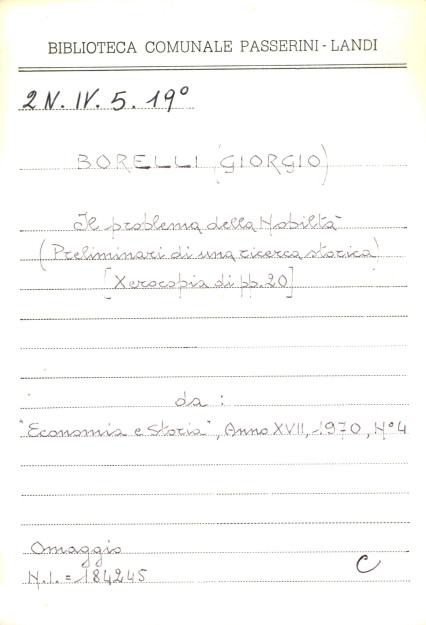 BIBLIOTECA COMUNALE PASSERINI - LANDI
2N. IV. 5. 19°
BORELLI (GIORGIO)
Il problema della Nobiltà
(Preliminari di una ricerca storica)
[Xerocopia di pp. 20]
da :
"Economia e Storia", Anno XVII, 1970, N°4
Omaggio
N.I. = 184245
C